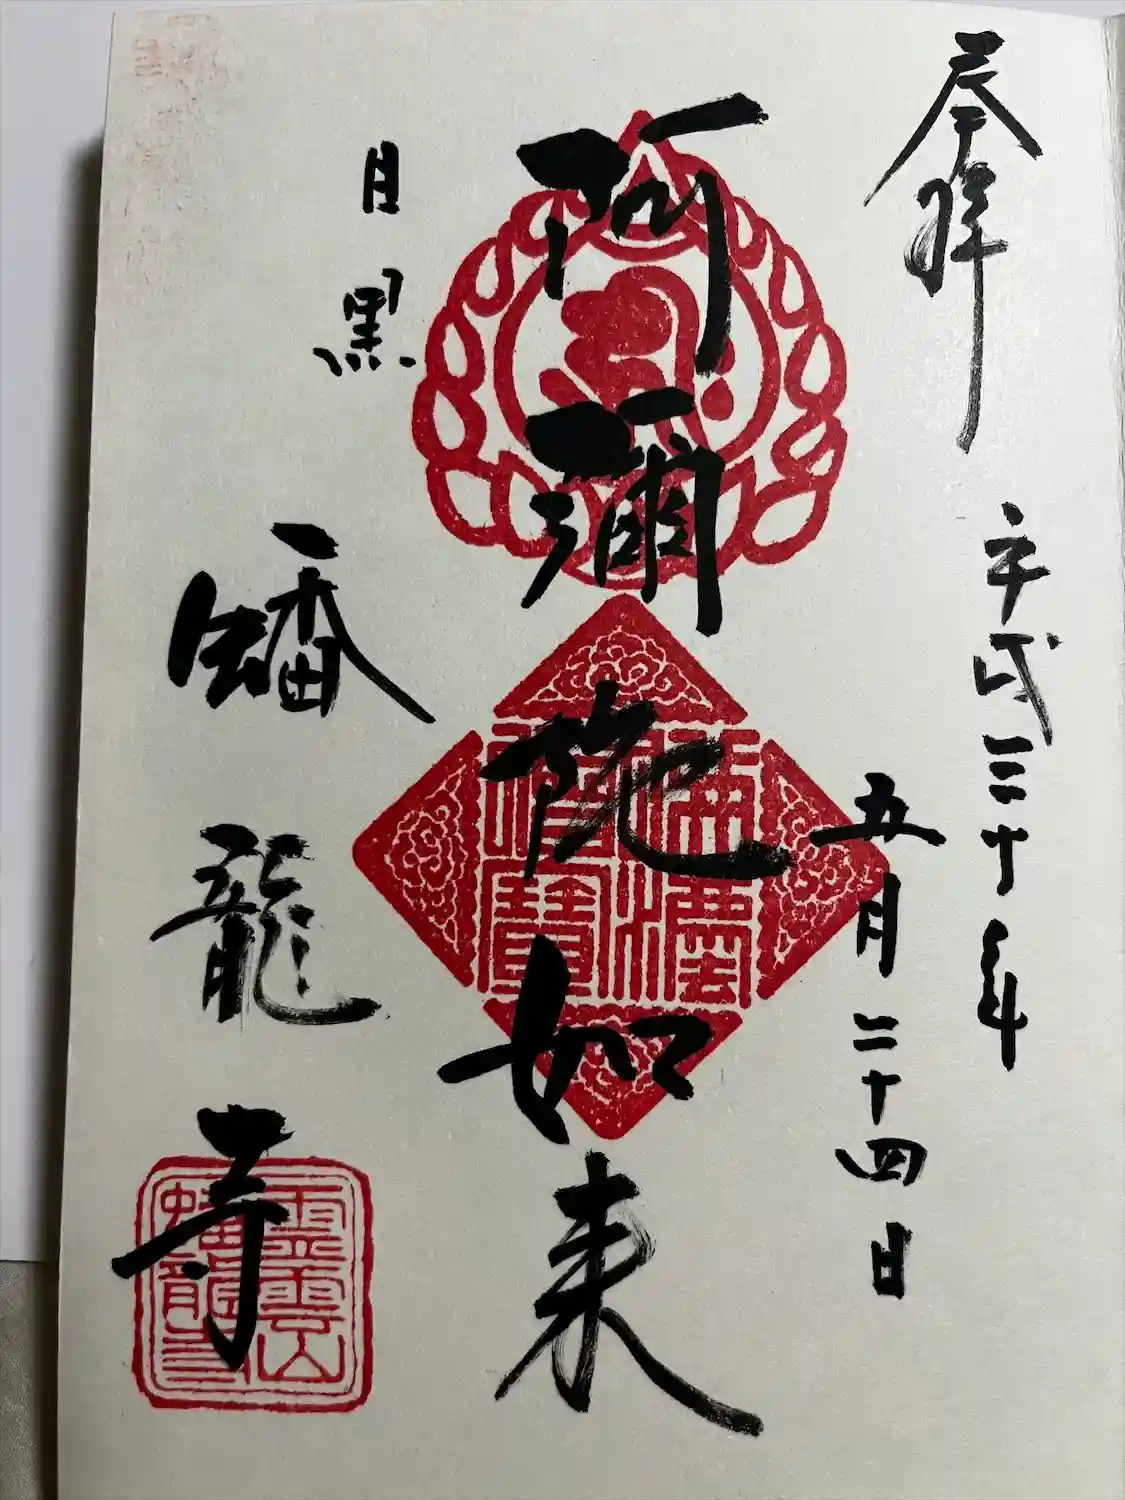 奉拝
平成三十年
五月二十四日
阿彌陀如来
目黒
蟠龍寺
霊雲山
蟠龍寺